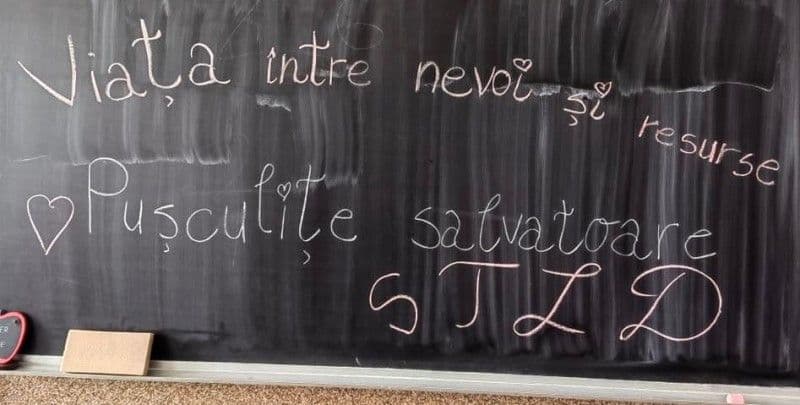 Viața între nevoi și resurse
Pușculițe salvatoare
STLD